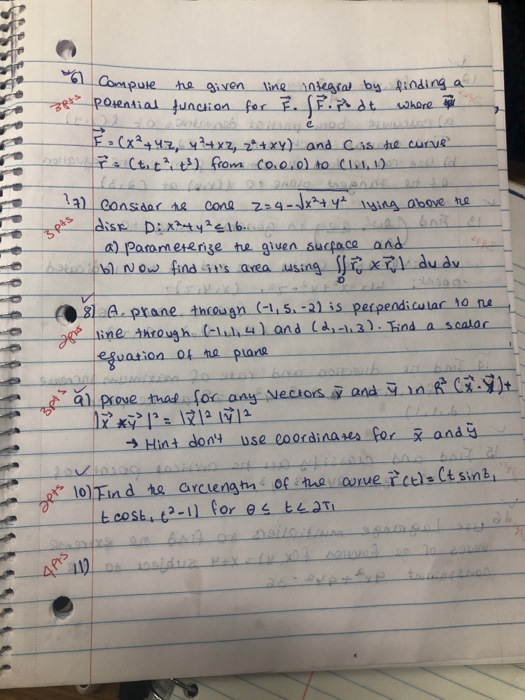 6) Compute the given line integral by finding a
3pts potential function for F. ∫c F · r' dt where
F = (x²+yz, y²+xz, z²+xy) and C is the curve
r = (t, t², t³) from (0,0,0) to (1,1,1)
7) Consider the cone z=4-√x²+y² lying above the
3pts disk D: x²+y² ≤ 16.
a) Parameterize the given surface and
b) Now find it's area using ∬D |ru × rv| du dv
8) A plane through (-1, 5, -2) is perpendicular to the
2pts line through (-1, 1, 4) and (2, -1, 3). Find a scalar
equation of the plane
3pts 9) prove that for any vectors x and y in R³ (x · y)+
|x × y|² = |x|² |y|²
→ Hint don't use coordinates for x and y
2pts 10) Find the arclength of the curve r(t) = (t sint,
t cost, t²-1) for 0 ≤ t ≤ 2π
4pts 11)